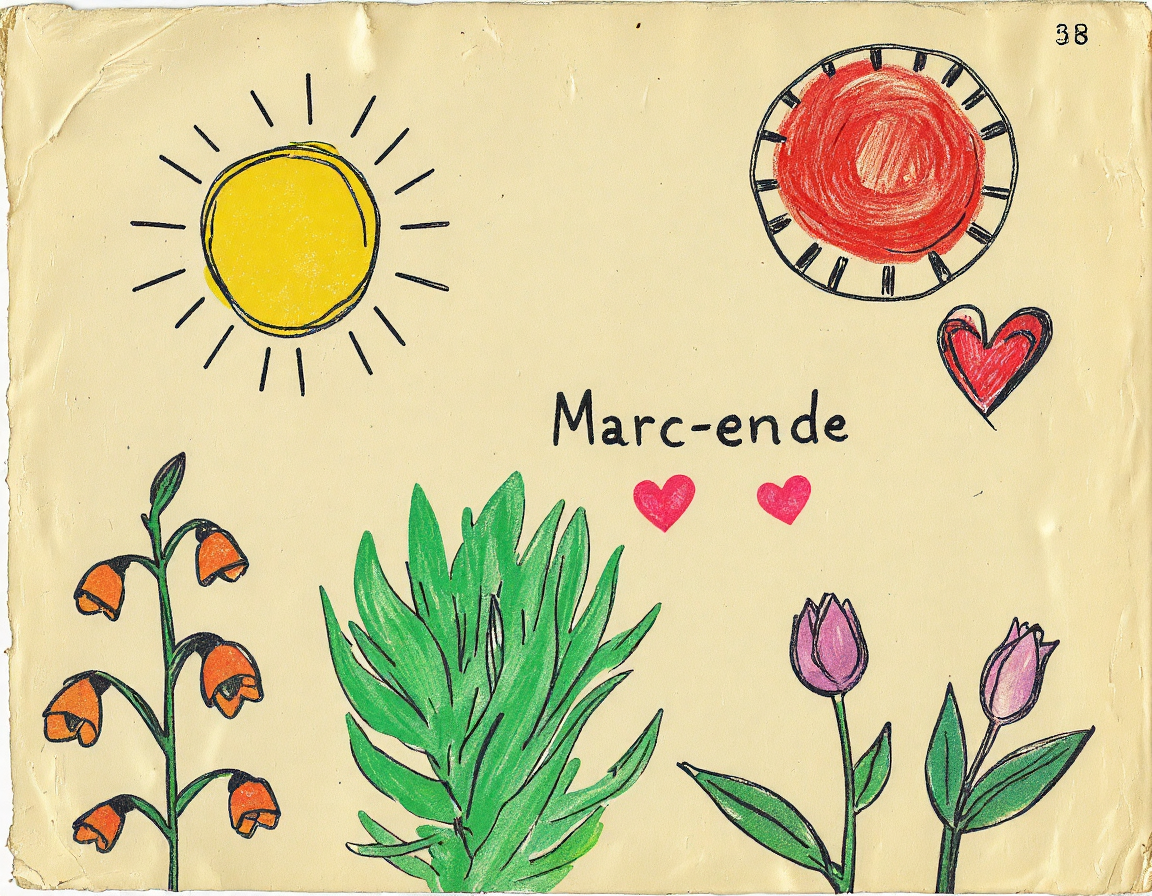 38
Marc-ende